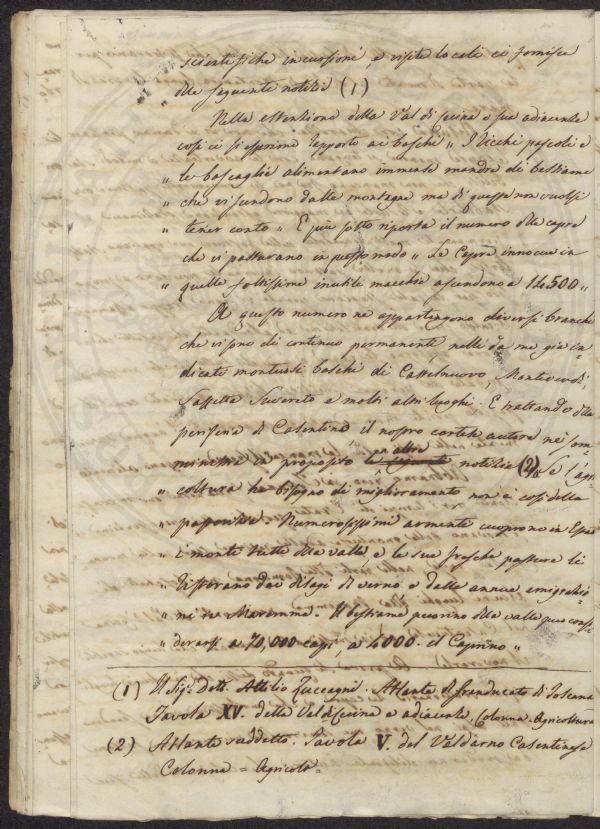 scientifiche incursioni, e visite locali ci fornisce
le seguenti notizie (1)
Nella estensione della Val di Cecina e sue adiacenze
così ci si esprime rapporto ai boschi „ I Ricchi pascoli e
„ le boscaglie alimentano immense mandre di bestiame
„ che vi scendono dalle montagne ma di queste non vuolsi
„ tener conto „ E più sotto riporta il numero delle capre
che vi pasturano in questo modo „ Le Capre innocue in
„ quelle foltissime inutili macchie ascendono a 14500 „
A questo numero ne appartengono diversi branchi
che vi sono di continuo permanenti nelli da me già in=
dicati montuosi boschi di Castelnuovo, Monteverdi,
Sassetta Suvereto e molti altri luoghi. E trattando della
del Casentino il nostro cortese autore ne som=
ministra in proposito le seguenti un altra notizia (2) „ Se l'agri
„ coltura ha bisogno di miglioramento non è così della
„ pastorizia. Numerosissimi armenti cuoprono in Estate
„ i monti tutti della valle, e le sue fresche pasture li
„ ristorano dai disagi di verno e dalle annue emigrazio=
„ ni in Maremma. Il bestiame pecorino della valle puo consi=
„ derarsi a 70,000 capi, a 4000 il Caprino „
(1) Il Sig. Dott. Attilio Zuccagni. Atlante del Granducato di Toscana
Tavola XV. della Valdicecina e adiacenze, Colonna Agricoltura
(2) Atlante suddetto. Tavola V. del Valdarno Casentinese
Colonna = Agricolt.=